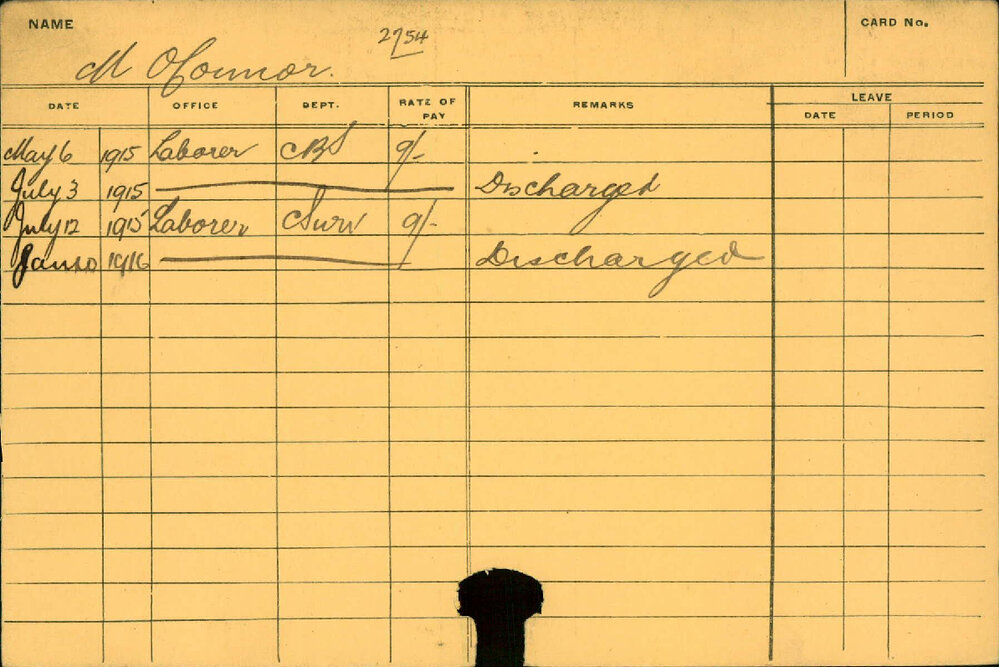 NAME
CARD No.
2754
M O'Connor.
DATE OFFICE DEPT. RATE OF PAY REMARKS LEAVE
DATE PERIOD
May 6 1915 Laborer CBS 9/-
July 3 1915 Discharged
July 12 1915 Laborer Surv 9/-
Jan 20 1916 Discharged